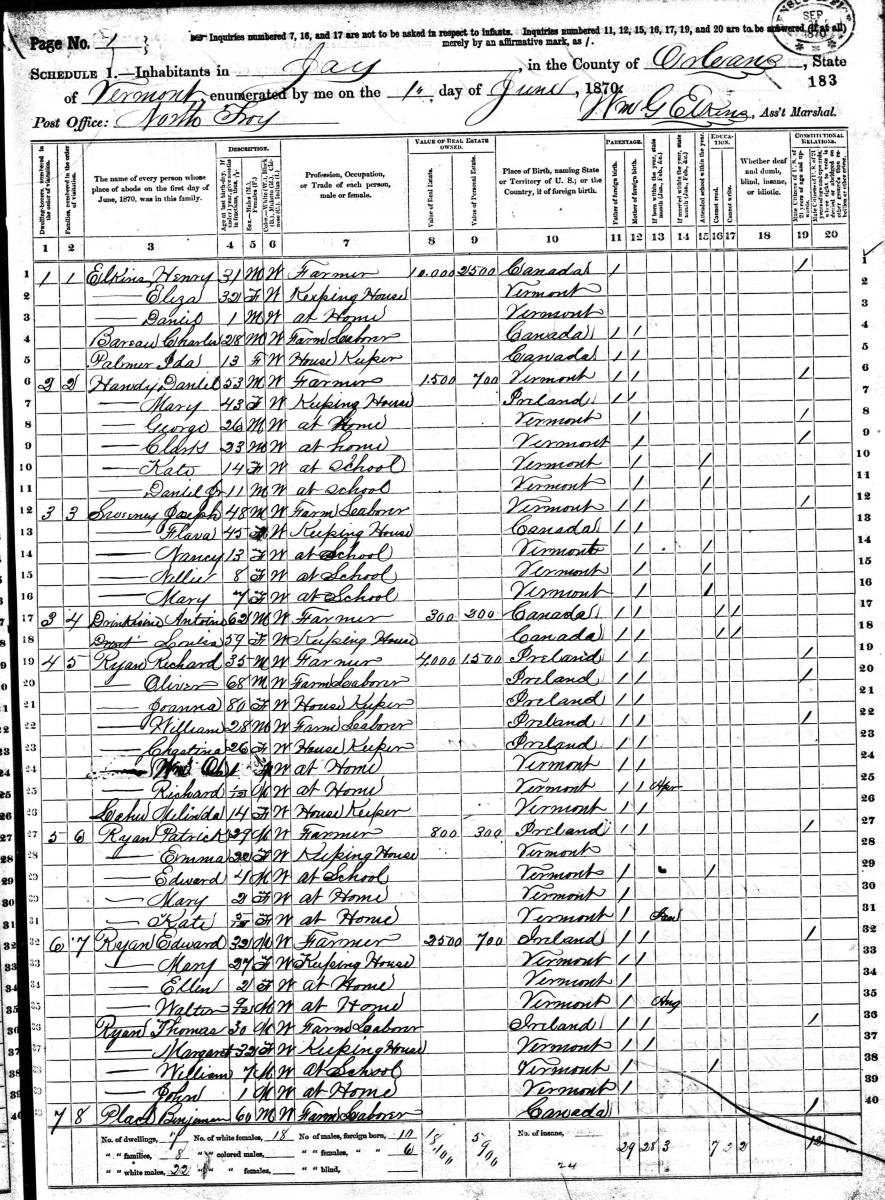 Page No. 1
Inquiries numbered 7, 16, and 17 are not to be asked in respect to infants. Inquiries numbered 11, 12, 15, 16, 17, 19, and 20 are to be answered (if at all)
merely by an affirmative mark, as /.
SEP 1870
SCHEDULE 1.—Inhabitants in Jay, in the County of Orleans, State
183
of Vermont, enumerated by me on the 1st day of June, 1870.
Post Office: North Troy
Wm G Elkins, Ass't Marshal.
DESCRIPTION. VALUE OF REAL ESTATE OWNED. PARENTAGE. EDUCATION. CONSTITUTIONAL RELATIONS.
Dwelling-houses, numbered in the order of visitation.
Families, numbered in the order of visitation.
The name of every person whose place of abode on the first day of June, 1870, was in this family.
Age at last birth-day. If under 1 year, give months in fractions, thus,
Sex.—Males (M.), Females (F.)
Profession, Occupation, or Trade of each person, male or female.
Value of Real Estate.
Value of Personal Estate.
Place of Birth, naming State or Territory of U. S.; or the Country, if of foreign birth.
Father of foreign birth.
Mother of foreign birth.
If born within the year, state month (Jan., Feb., &c.)
If married within the year, state month (Jan., Feb., &c.)
Attended school within the year.
Cannot read.
Cannot write.
Whether deaf and dumb, blind, insane, or idiotic.
1 2 3 4 5 6 7 8 9 10 11 12 13 14 15 16 17 18 19 20
1 1 1 Elkins Henry 31 M W Farmer 10.000 2500 Canada / / 1
2 — Eliza 32 F W Keeping House Vermont 2
3 — Daniel 1 M W at Home Vermont 3
4 Bareau Charles 28 M W Farm Laborer Canada / / 4
5 Palmer Ida 13 F W House Keeper Canada / / 5
6 2 2 Handy Daniel 53 M W Farmer 1.500 700 Vermont / / 6
7 — Mary 43 F W Keeping House Ireland / / 7
8 — George 26 M W at Home Vermont / / 8
9 — Clark 23 M W at home Vermont / / 9
10 — Kate 14 F W at School Vermont / / 10
11 — Daniel Jr 11 M W at school Vermont / / 11
12 3 3 Sweeney Joseph 48 M W Farm Laborer Vermont / / / 12
13 — Flava 45 F W Keeping House Canada / / 13
14 — Nancy 13 F W at School Vermont / / 14
15 — Nellie 8 F W at School Vermont / / 15
16 — Mary 7 F W at School Vermont / / 16
17 3 4 Drinkwine Antoine 62 M W Farmer 300 200 Canada / / / / 17
18 Louisa 59 F W Keeping House Canada / / / / 18
19 4 5 Ryan Richard 35 M W Farmer 4.000 1.500 Ireland / / / 19
20 — Oliver 68 M W Farm Laborer Ireland / / / 20
21 — Joanna 80 F W House Keeper Ireland / / 21
22 — William 28 M W Farm Laborer Ireland / / / 22
23 — Chestina 26 F W House Keeper Ireland / / 23
24 1 W at Home Vermont / / 24
25 — Richard M W at Home Vermont / / Apr 25
26 Melinda 14 F W House Keeper Vermont / / 26
27 5 6 Ryan Patrick 29 M W Farmer 800 300 Ireland / / / 27
28 — Emma 22 F W Keeping House Vermont 28
29 — Edward 4 M W at School Vermont / / 29
30 — Mary 2 F W at Home Vermont / 30
31 — Kate F W at Home Vermont / 31
32 6 7 Ryan Edward 32 M W Farmer 2500 700 Ireland / / / 32
33 — Mary 27 F W Keeping House Vermont / / 33
34 — Ellen 2 F W at Home Vermont / 34
35 — Walter M W at Home Vermont / Aug 35
36 Ryan Thomas 30 M W Farm Laborer Ireland / / / 36
37 — Margaret 32 F W Keeping House Vermont / / 37
38 — William 7 M W at School Vermont / / 38
39 — John 1 M W at Home Vermont / 39
40 7 8 Place Benjeman 60 M W Farm Laborer Canada / 40
No. of dwellings, 7 No. of white females, 18 No. of males, foreign born, 10 18,100 5,900 No. of insane, 29 28 3 7 2 2 12
" " families, 8 " " colored males, " " females, " " 6
" " white males, 22 " " " females, " " blind, 24